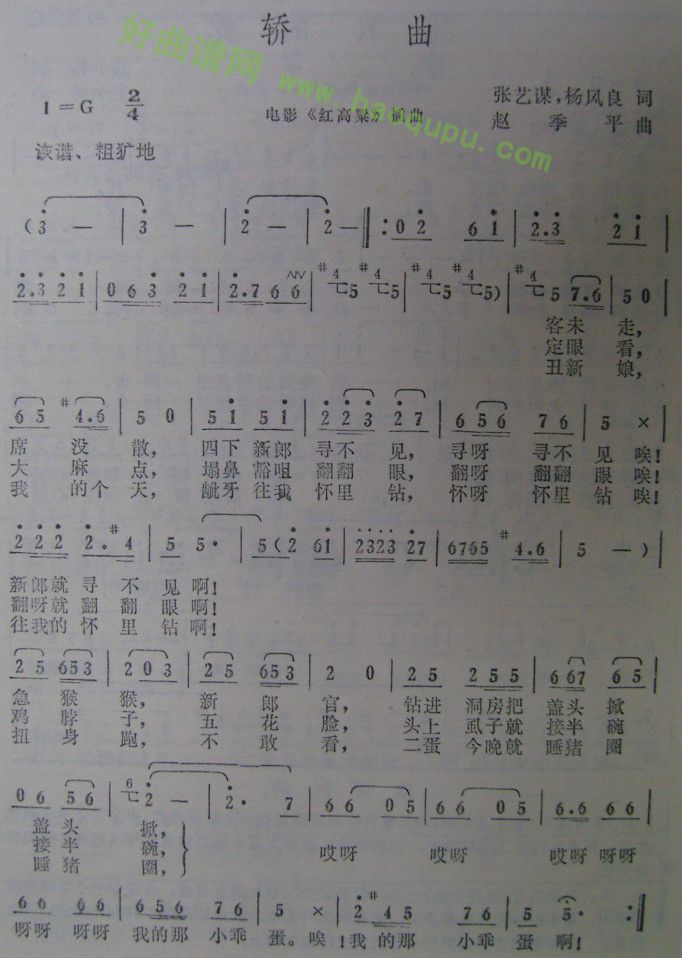 轿 曲
好曲谱网
www.haoqupu.com
1=G 2/4
电影《红高粱》插曲
张艺谋,杨风良 词
赵 季 平 曲
诙谐、粗犷地
(3 — | 3 — | 2 — | 2 — ‖: 02 61 | 2.3 21 |
2.3 21 | 063 21 | 2.7 66 | #4 5 #4 5 | #4 5 #4 5) | #4 5 7.6 | 50 |
客未 走,
定眼 看,
丑新 娘,
65 #4.6 | 50 | 51 51 | 223 27 | 656 76 | 5 × |
席 没 散, 四下 新郎 寻不 见, 寻呀 寻不 见 唉!
大 麻 点, 塌鼻 豁咀 翻翻 眼, 翻呀 翻翻 眼 唉!
我 的个 天, 龇牙 往我 怀里 钻, 怀呀 怀里 钻 唉!
222 2.#4 | 5 5. | 5(2 61 | 2323 27 | 6765 #4.6 | 5 —) |
新郎就 寻 不 见 啊!
翻呀就 翻 翻 眼 啊!
往我的 怀 里 钻 啊!
25 653 | 203 | 25 653 | 2 0 | 25 255 | 667 65 |
急 猴 猴, 新 郎 官, 钻进 洞房把 盖头 掀
鸡 脖 子, 五 花 脸, 头上 虱子就 接半 碗
扭 身 跑, 不 敢 看, 二蛋 今晚就 睡猪 圈
06 56 | 6 2 — | 2. 7 | 66 05 | 66 05 | 6.6 66 |
盖头 掀,
接半 碗,
睡猪 圈,
哎呀 哎呀 哎呀 呀呀
66 66 | 666 76 | 5 × | 2 #45 | 76 5 | 5. :‖
呀呀 呀呀 我的那 小乖 蛋。唉!我的那 小乖 蛋 啊!